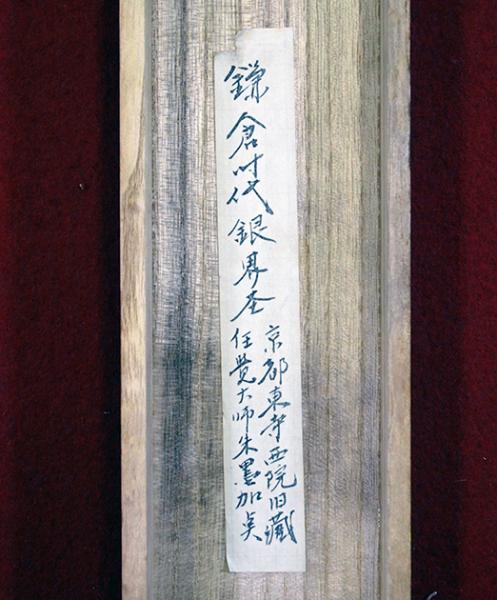 鎌倉时代 銀界圣
京都東寺西院旧藏
任覺大师朱墨加奌